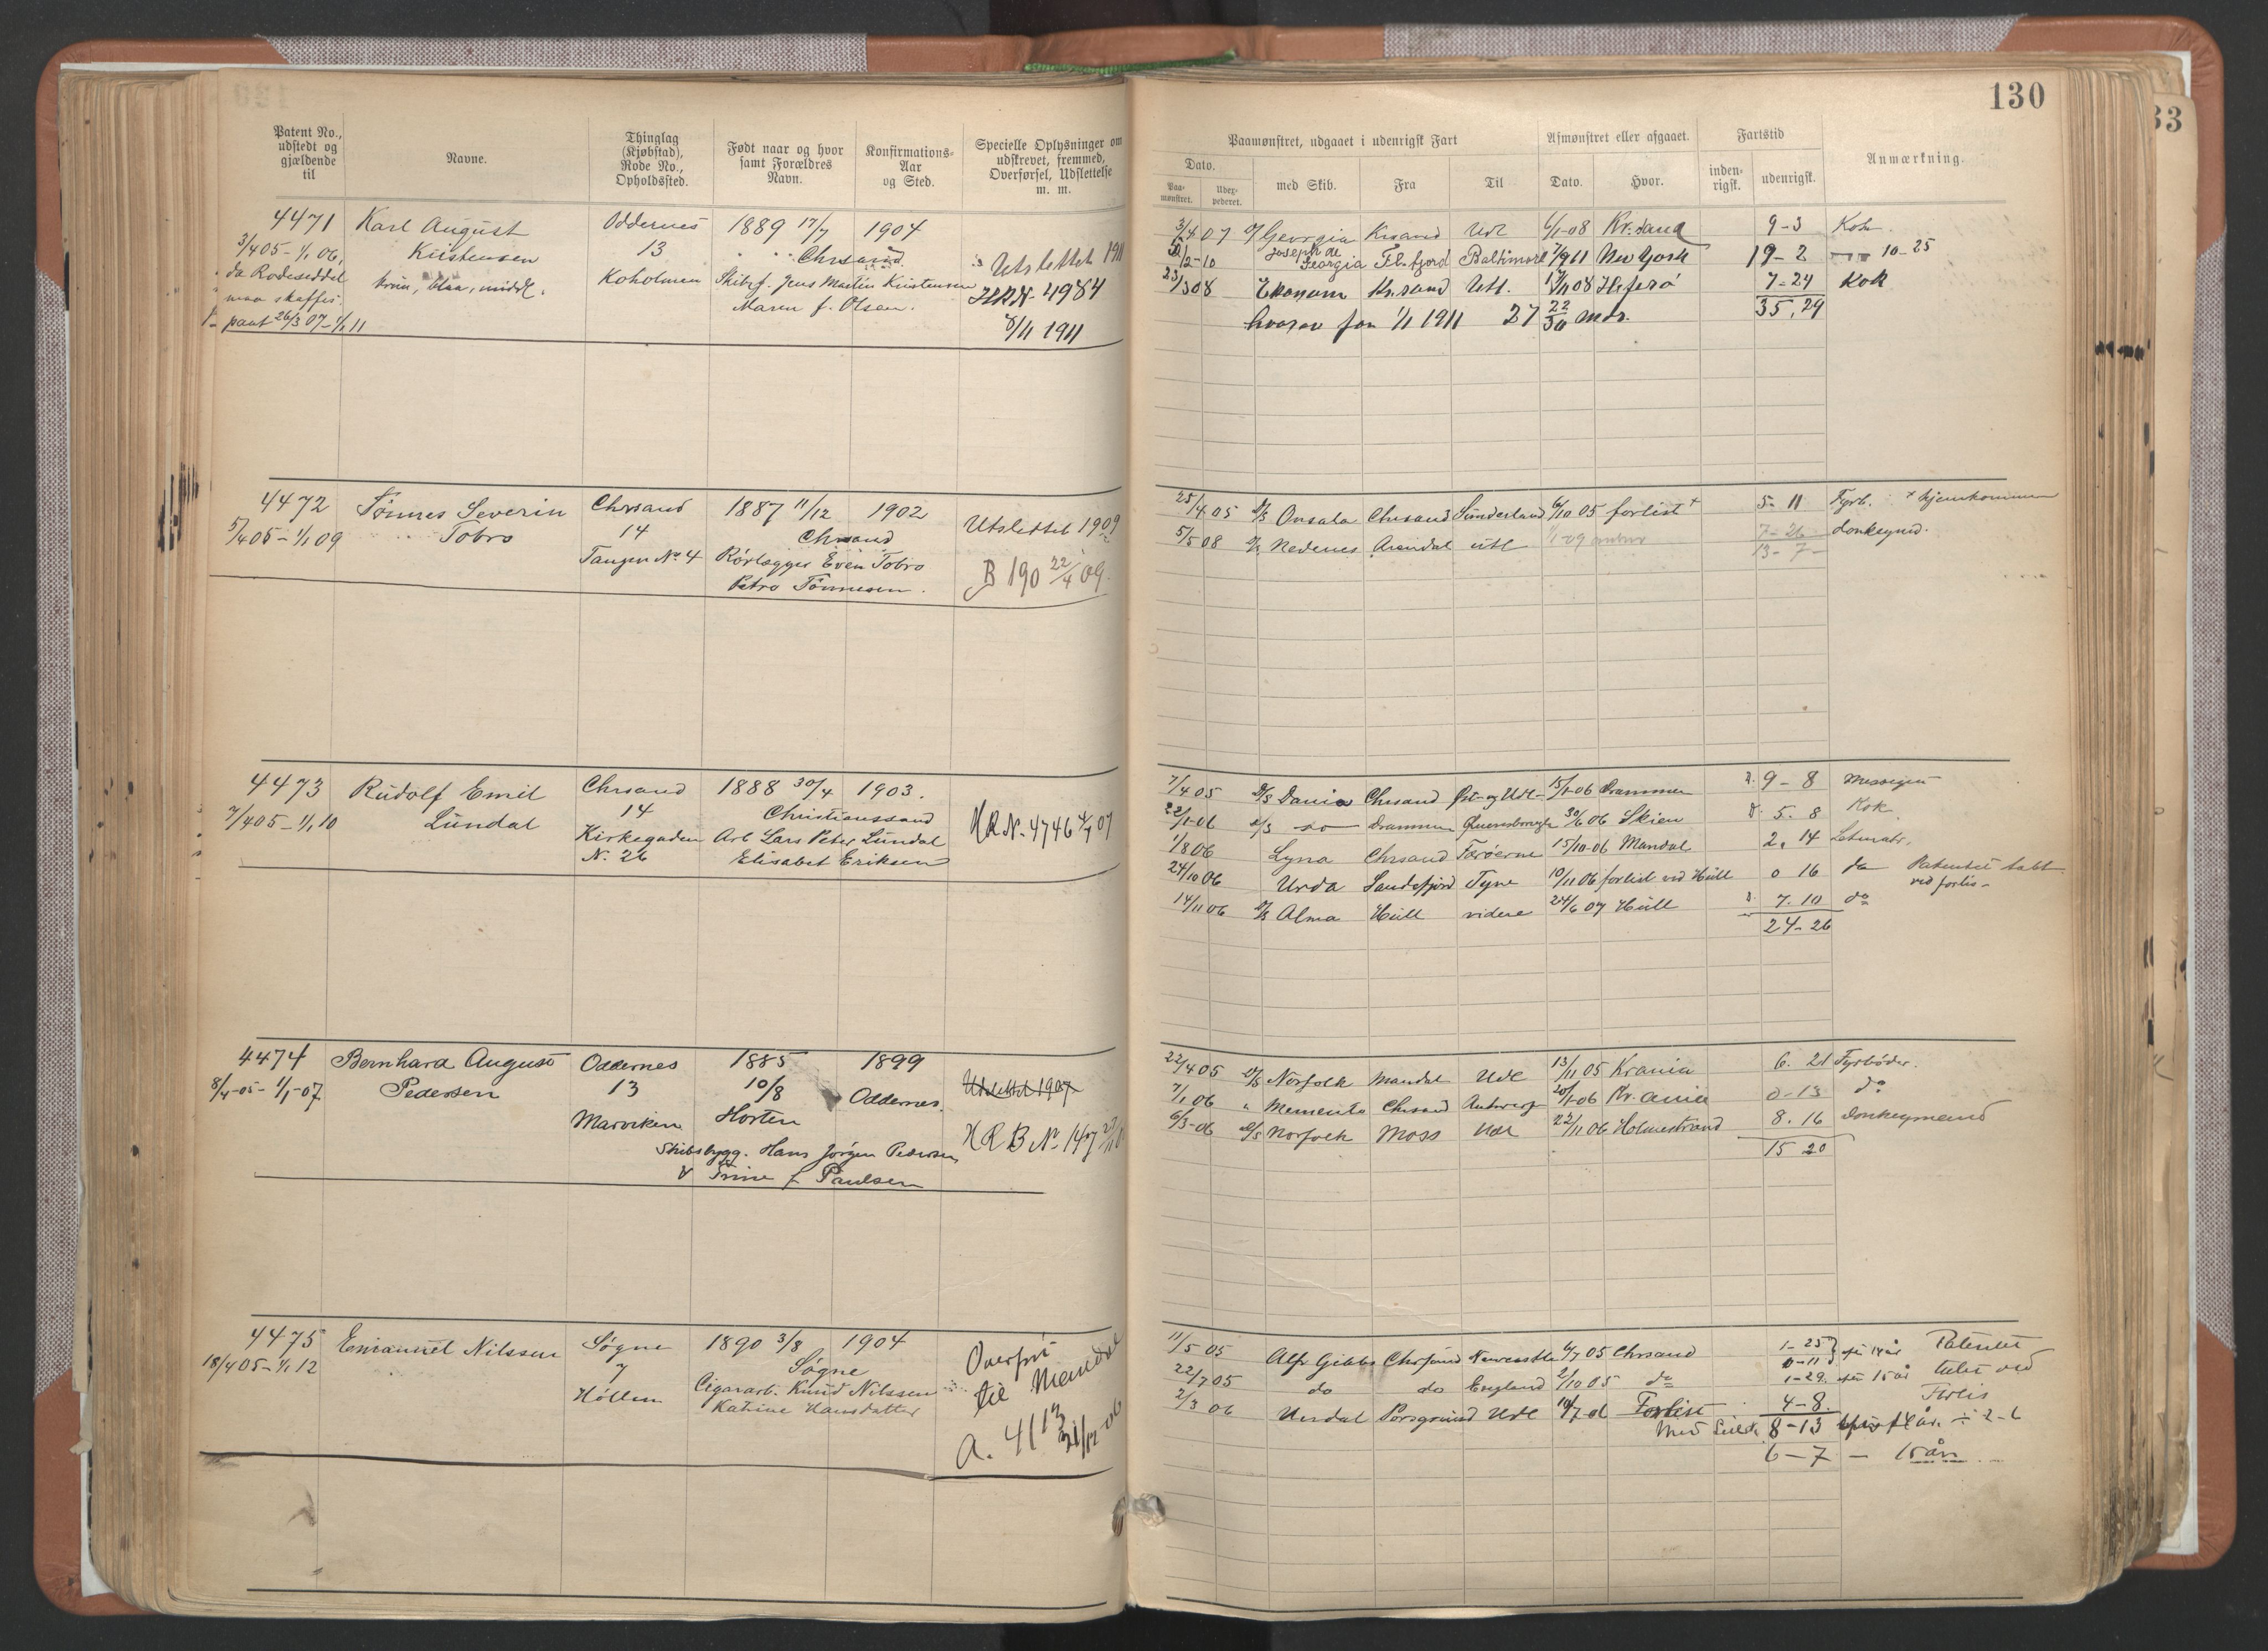 130
Patent No., udstedt og gjældende til
Navne.
Thinglag (Kjøbstad), Rode No., Opholdssted.
Født naar og hvor samt Forældres Navn.
Konfirmations-Aar og Sted.
Specielle Oplysninger om udskrevet, fremmed, Overførsel, Udslettelse m. m.
Paamønstret, udgaaet i udenrigsk Fart
Afmønstret eller afgaaet.
Fartstid
Anmærkning.
Dato.
Paamønstret.
med Skib.
Fra
Til
Dato.
Hvor.
indenrigsk.
udenrigsk.
4471 Karl August Oddernes 1889 17/7 1904
3/4 05 - 1/1 06, Kristensen 13 Chrsand Utslettet 1911
da Rodeseddel Koholmen Skibsf. Jens Martin Kristensen HRN. 4984
maa skaffes. Maren f. Olsen. 8/11 1911
pant 26/3 07 - 1/1 11
3/4 07 Georgia Krsand Udl 6/1-08 Kr.sand 9-3 Kok
Georgia Fl.fjord Baltimore 7/9 11 New York 19-2 10-25
Ekonom Kr.sand Utl. 08 7-24 Kok
hvorav før 1/1 1911 27 22/30 mdr. 35,29
4472 Tønnes Severin Chrsand 1887 11/12 1902
5/4 05 - 1/1 09 Tobro 14 Chrsand Utslettet 1909
Tangen No 4 Rørlægger Even Tobro B 190 22/4 09.
Petra Tønnesen.
25/4 05 D/S Onsala Chrsand Sunderland 6/10 05 forlist + 5-11 Fyrb. + hjemkommen
5/5 08 D/S Nedenes Arendal utl 7-26 donkeymd.
13-7-
4473 Rudolf Emil Chrsand 1888 30/4 1903.
7/4 05 - 1/1 10 Lundal 14 Christianssand HRN. 4746 4/7 07
Kirkegaden Arb Lars Peter Lundal
N. 26 Elisabet Eriksen
7/4 05 D/S Dania Chrsand Øst- og Udl- 15/1-06 Drammen 9-8
22/1-06 D/S do Drammen 30/6 06 Skien 5.8 Kok
1/8 06 Lyna Chrsand Færøerne 15/10-06 Mandal 2.14 Letmatr.
24/10 06 Urda Sandefjord Tyne 10/11 06 forlist ved Hull 0 16 do Patentet tabt
ved forlis-
14/11 06 D/S Alma Hull videre 24/6 07 Hull 7.10 do
24-26
4474 Bernhard August Oddernes 1885 1899
8/4-05 - 1/1-07 Pedersen 13 10/8 Oddernes. Udslettet 1907
Marviken Horten HRB No 147
Skibsbygg. Hans Jørgen Pedersen
& Trine f Paulsen
22/4 05 D/S Norfolk Mandal Udl 13/11 05 Krania 6. 21 Fyrbøder.
7/1 06 " Memento Chrsand Antwerp 20/1-06 Kr.ania 0-13 do
6/3-06 D/S Norfolk Moss Udl 22/11 06 Holmestrand 8.16 Donkeymand
15 20
4475 Emanuel Nilssen Søgne 1890 3/8 1904
18/4 05 - 1/1 12 7 Søgne Overført
Høllen Cigararb. Knud Nilssen til Mandal
Katrine Hansdatter A. 4113 31/12-06
11/5 05 Alf Gibbs Chrsand Newcastle 6/7 05 Chrsand 1-25 0-11 før 14 år Patentet
22/7 05 do do England 2/10 05 do 1-29. før 15 år tabt ved
2/3 06 Urdal Porsgrund Udl 10/7-06 Forlist 4-8. Forlis
8-13 ÷ 2-6
6-7 - 15 år